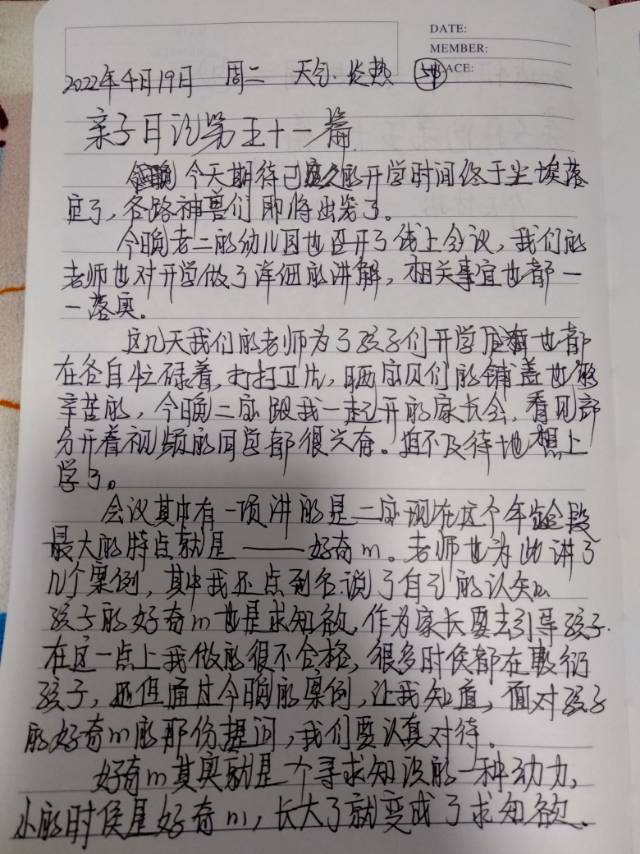 DATE:
MEMBER:
ACE:
2022年4月19日 周二 天气:炎热
亲子日记第五十一篇
今天期待已久的开学时间终于尘埃落
定了，各路神兽们即将出发了。
今晚老二的幼儿园也召开了线上会议，我们的
老师也对开学做了详细的讲解，相关事宜也都一
一落实。
这几天我们的老师为了孩子们开学也都
在各自忙碌着，打打卫片，晒宝贝们的铺盖也够
辛苦的，今晚二宝跟我一起开的家长会，看见部
分开着视频的同学都很兴奋。迫不及待地想上
学了。
会议其中有一项讲的是二宝现在这个年龄段
最大的特点就是——好奇心。老师也为此讲了
几个案例，其中我还点到名说了自己的认知
孩子的好奇心也是求知欲，作为家长要去引导孩子
在这一点上我做的很不合格，很多时候都在敷衍
孩子，但通过今晚的案例，让我知道，面对孩子
的好奇心的那份提问，我们要认真对待。
好奇心其实就是一个寻求知识的一种动力，
小的时侯是好奇心，长大了就变成了求知欲。